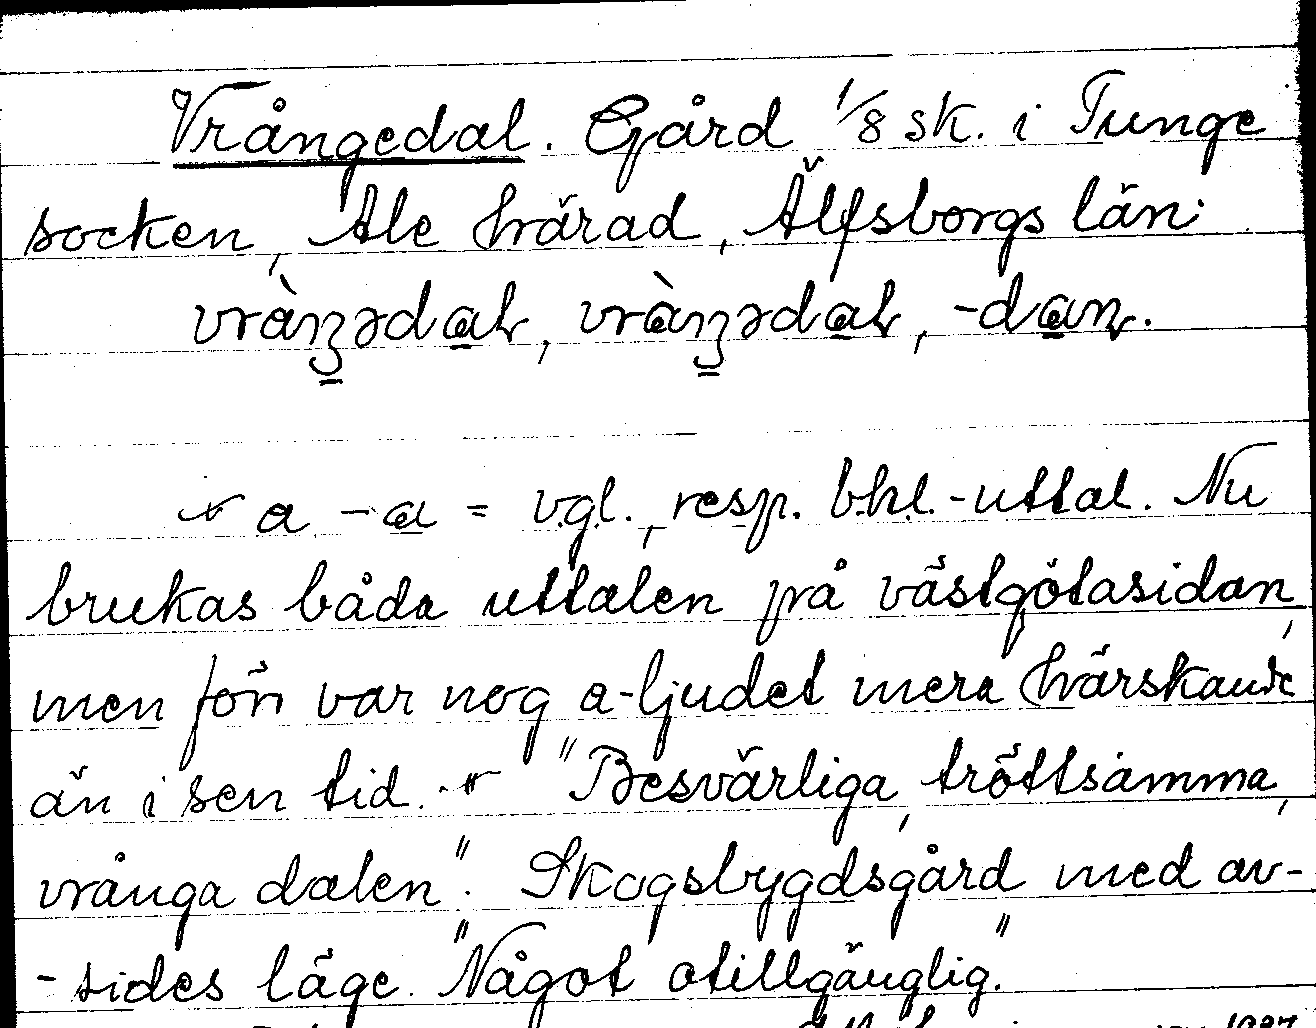 Vrångedal. Gård 1/8 sk. i Tunge
socken, Ale härad, Älfsborgs län:
vràŋədaɬ, vràŋədaɬ, -daɳ.
a - a = v.gl., resp. b.hl.-uttal. Nu
brukas båda uttalen på västgötasidan,
men förr var nog a-ljudet mera härskande
än i sen tid. "Besvärliga, tröttsamma,
vrånga dalen". Skogsbygdsgård med av-
-sides läge. "Något otillgänglig."